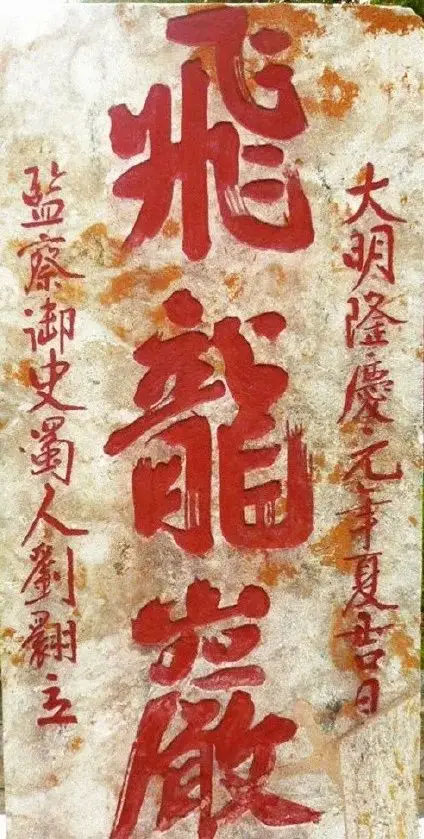 大明隆慶元年夏吉日
飛龍巖
監察御史蜀人劉翾立